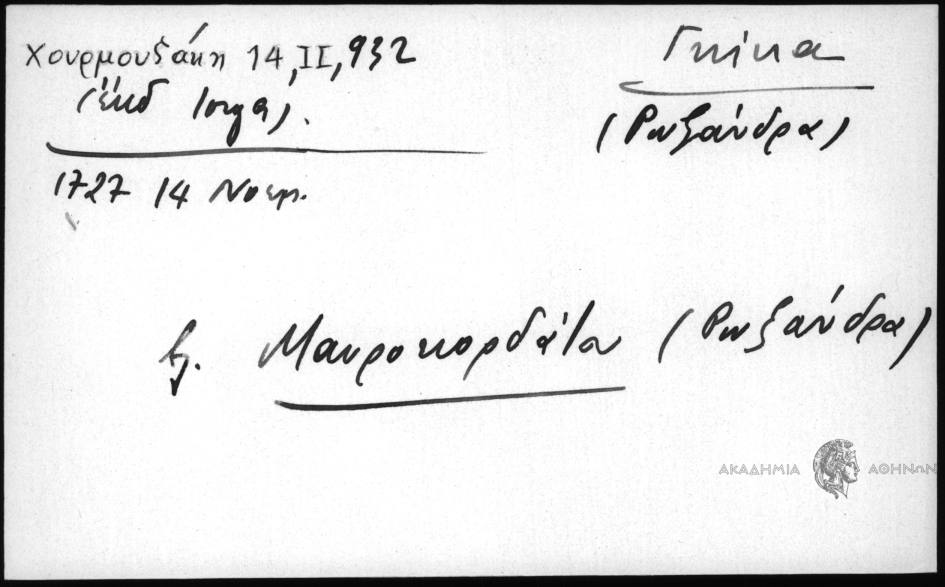 Χουρμουζάκη 14, II, 932
(ἔκδ Ιοργα).
Γκίκα
(Ρωξάνδρα)
1727 14 Νοεμ.
βλ. Μαυροκορδάτου (Ρωξάνδρα)
ΑΚΑΔΗΜΙΑ ΑΘΗΝΩΝ